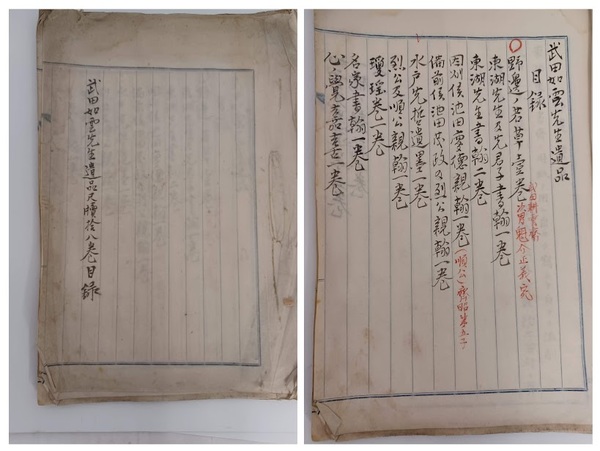 武田如雲先生遺品尺牘拾八巻目録
武田如雲先生遺品
目録
野邊ノ若草壱巻
東湖先生及先君子書翰一巻
東湖先生書翰二巻
因州侯池田慶徳親翰一巻
備前侯池田茂政及烈公親翰一巻
水戸先哲遺墨一巻
烈公及順公親翰一巻
瓊瑶巻一巻
名家書翰一巻